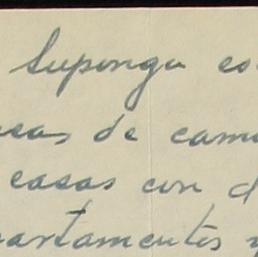 Supongu es
eas de cam
casas con d
partamentos y